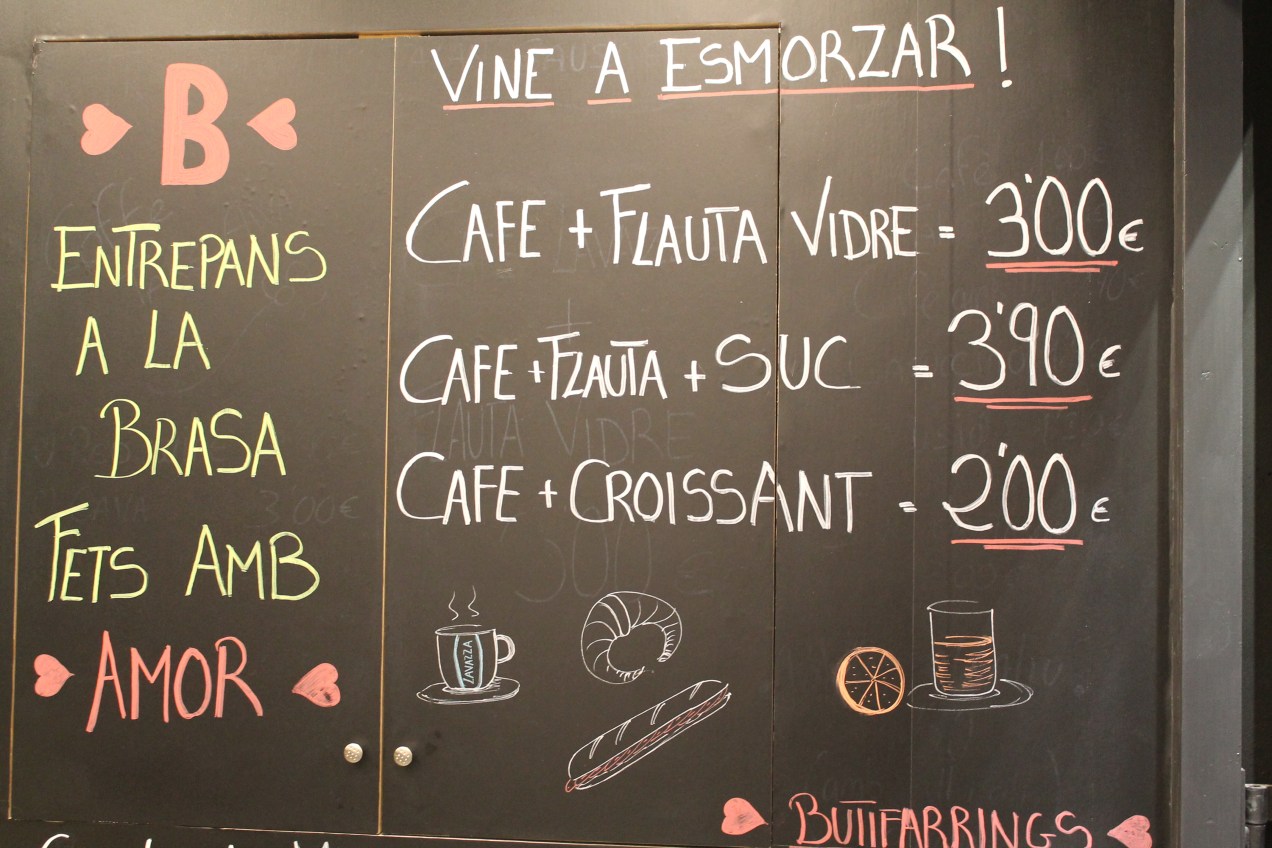 B
ENTREPANS
A LA
BRASA
FETS AMB
AMOR
VINE A ESMORZAR!
CAFE + FLAUTA VIDRE = 3'00€
CAFE + FLAUTA + SUC = 3'90€
CAFE + CROISSANT = 2'00€
LAVAZZA
BUTIFARRINGS